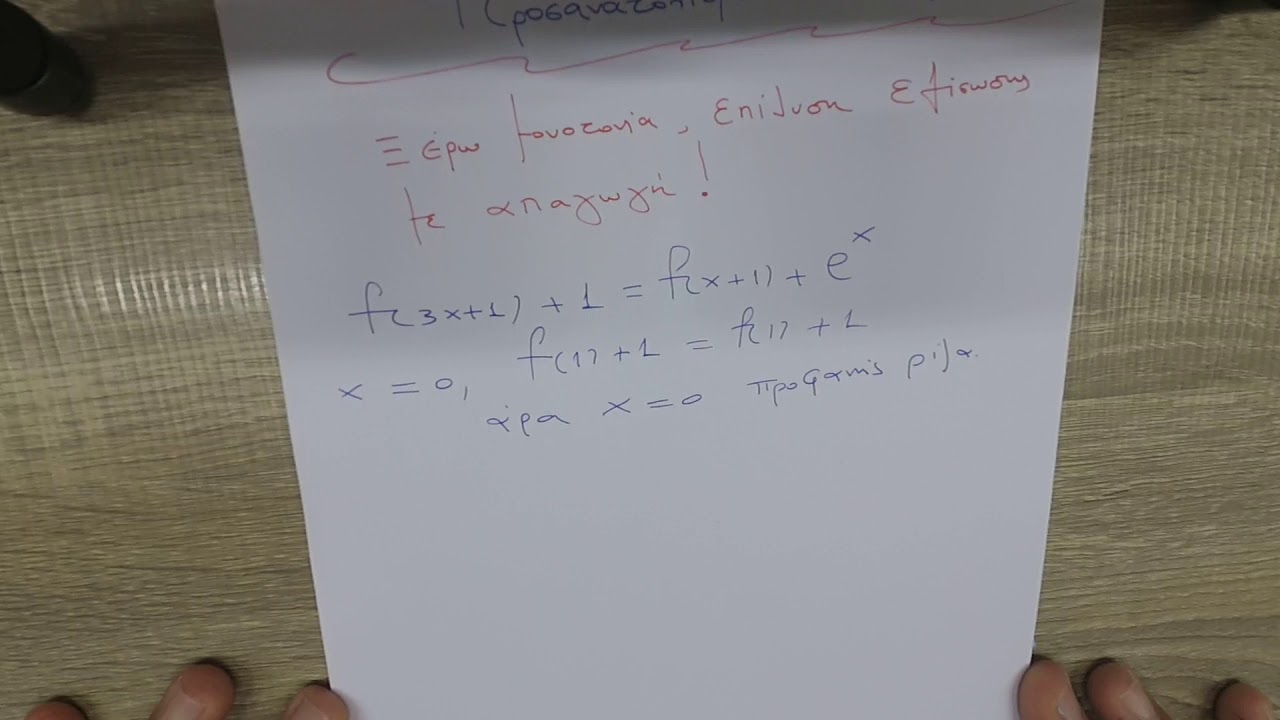 Προσανατολισμ
Ξέρω μονοτονία, επίλυση εξίσωσης
με απαγωγή!
f(3x+1) + 1 = f(x+1) + e^x
x = 0, f(1) + 1 = f(1) + 1
άρα x = 0 προφανής ρίζα.